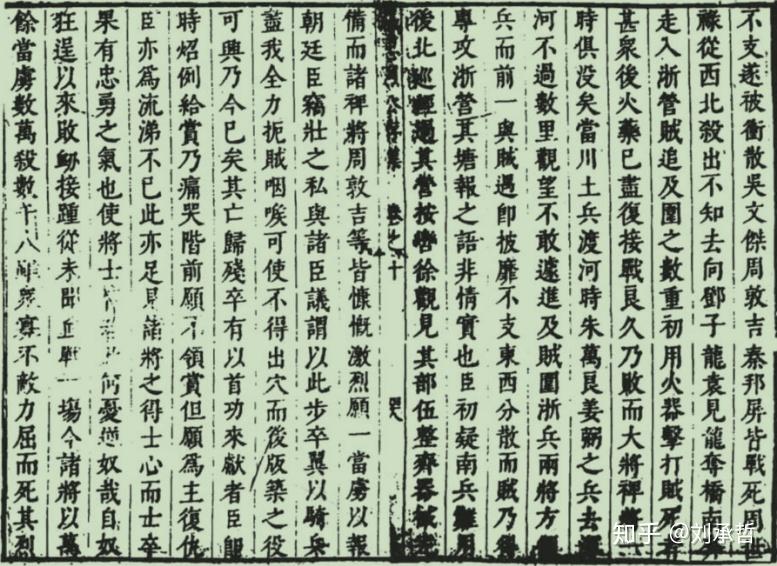 不支遂被衝散吳文傑周敦吉秦邦屏皆戰死周世
祿從西北殺出不知去向鄧子龍袁見龍奪橋南
走入浙營賊追及圍之數重初用火器擊打賊死
甚衆後火藥已盡復接戰良久乃敗而大將裨將
時俱没矣當川土兵渡河時朱萬良姜弼之兵去
河不過數里觀望不敢遽進及賊圍浙兵兩將方
兵而前一與賊遇卽披靡不支東西分散而賊乃得
專攻浙營其塘報之語非情實也臣初疑南兵難用
後北巡經過其營按轡徐觀見其部伍整齊器械
備而諸裨將周敦吉等皆慷慨激烈願一當虜以報
朝廷臣竊壯之私與諸臣議謂以此步卒翼以騎兵
盡我全力扼賊咽喉可使不得出穴而後版築之役
可興乃今已矣其亡歸殘卒有以首功來獻者臣
時炤例給賞乃痛哭階前願不領賞但願爲主復仇
臣亦爲流涕不已此亦足見諸將之得士心而士卒
果有忠勇之氣也使將士何憂逆奴哉自奴
狂逞以來敗衂接踵從未聞血戰一塲今諸將以萬
餘當虜數萬殺數千人雖衆寡不敵力屈而死其烈
卷之十
知乎 @刘承哲